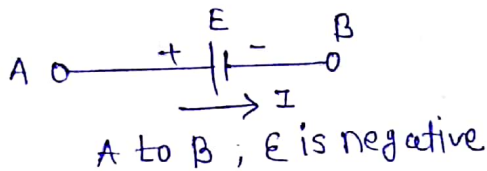 E
B
+ -
A
I
A to B ; E is negative